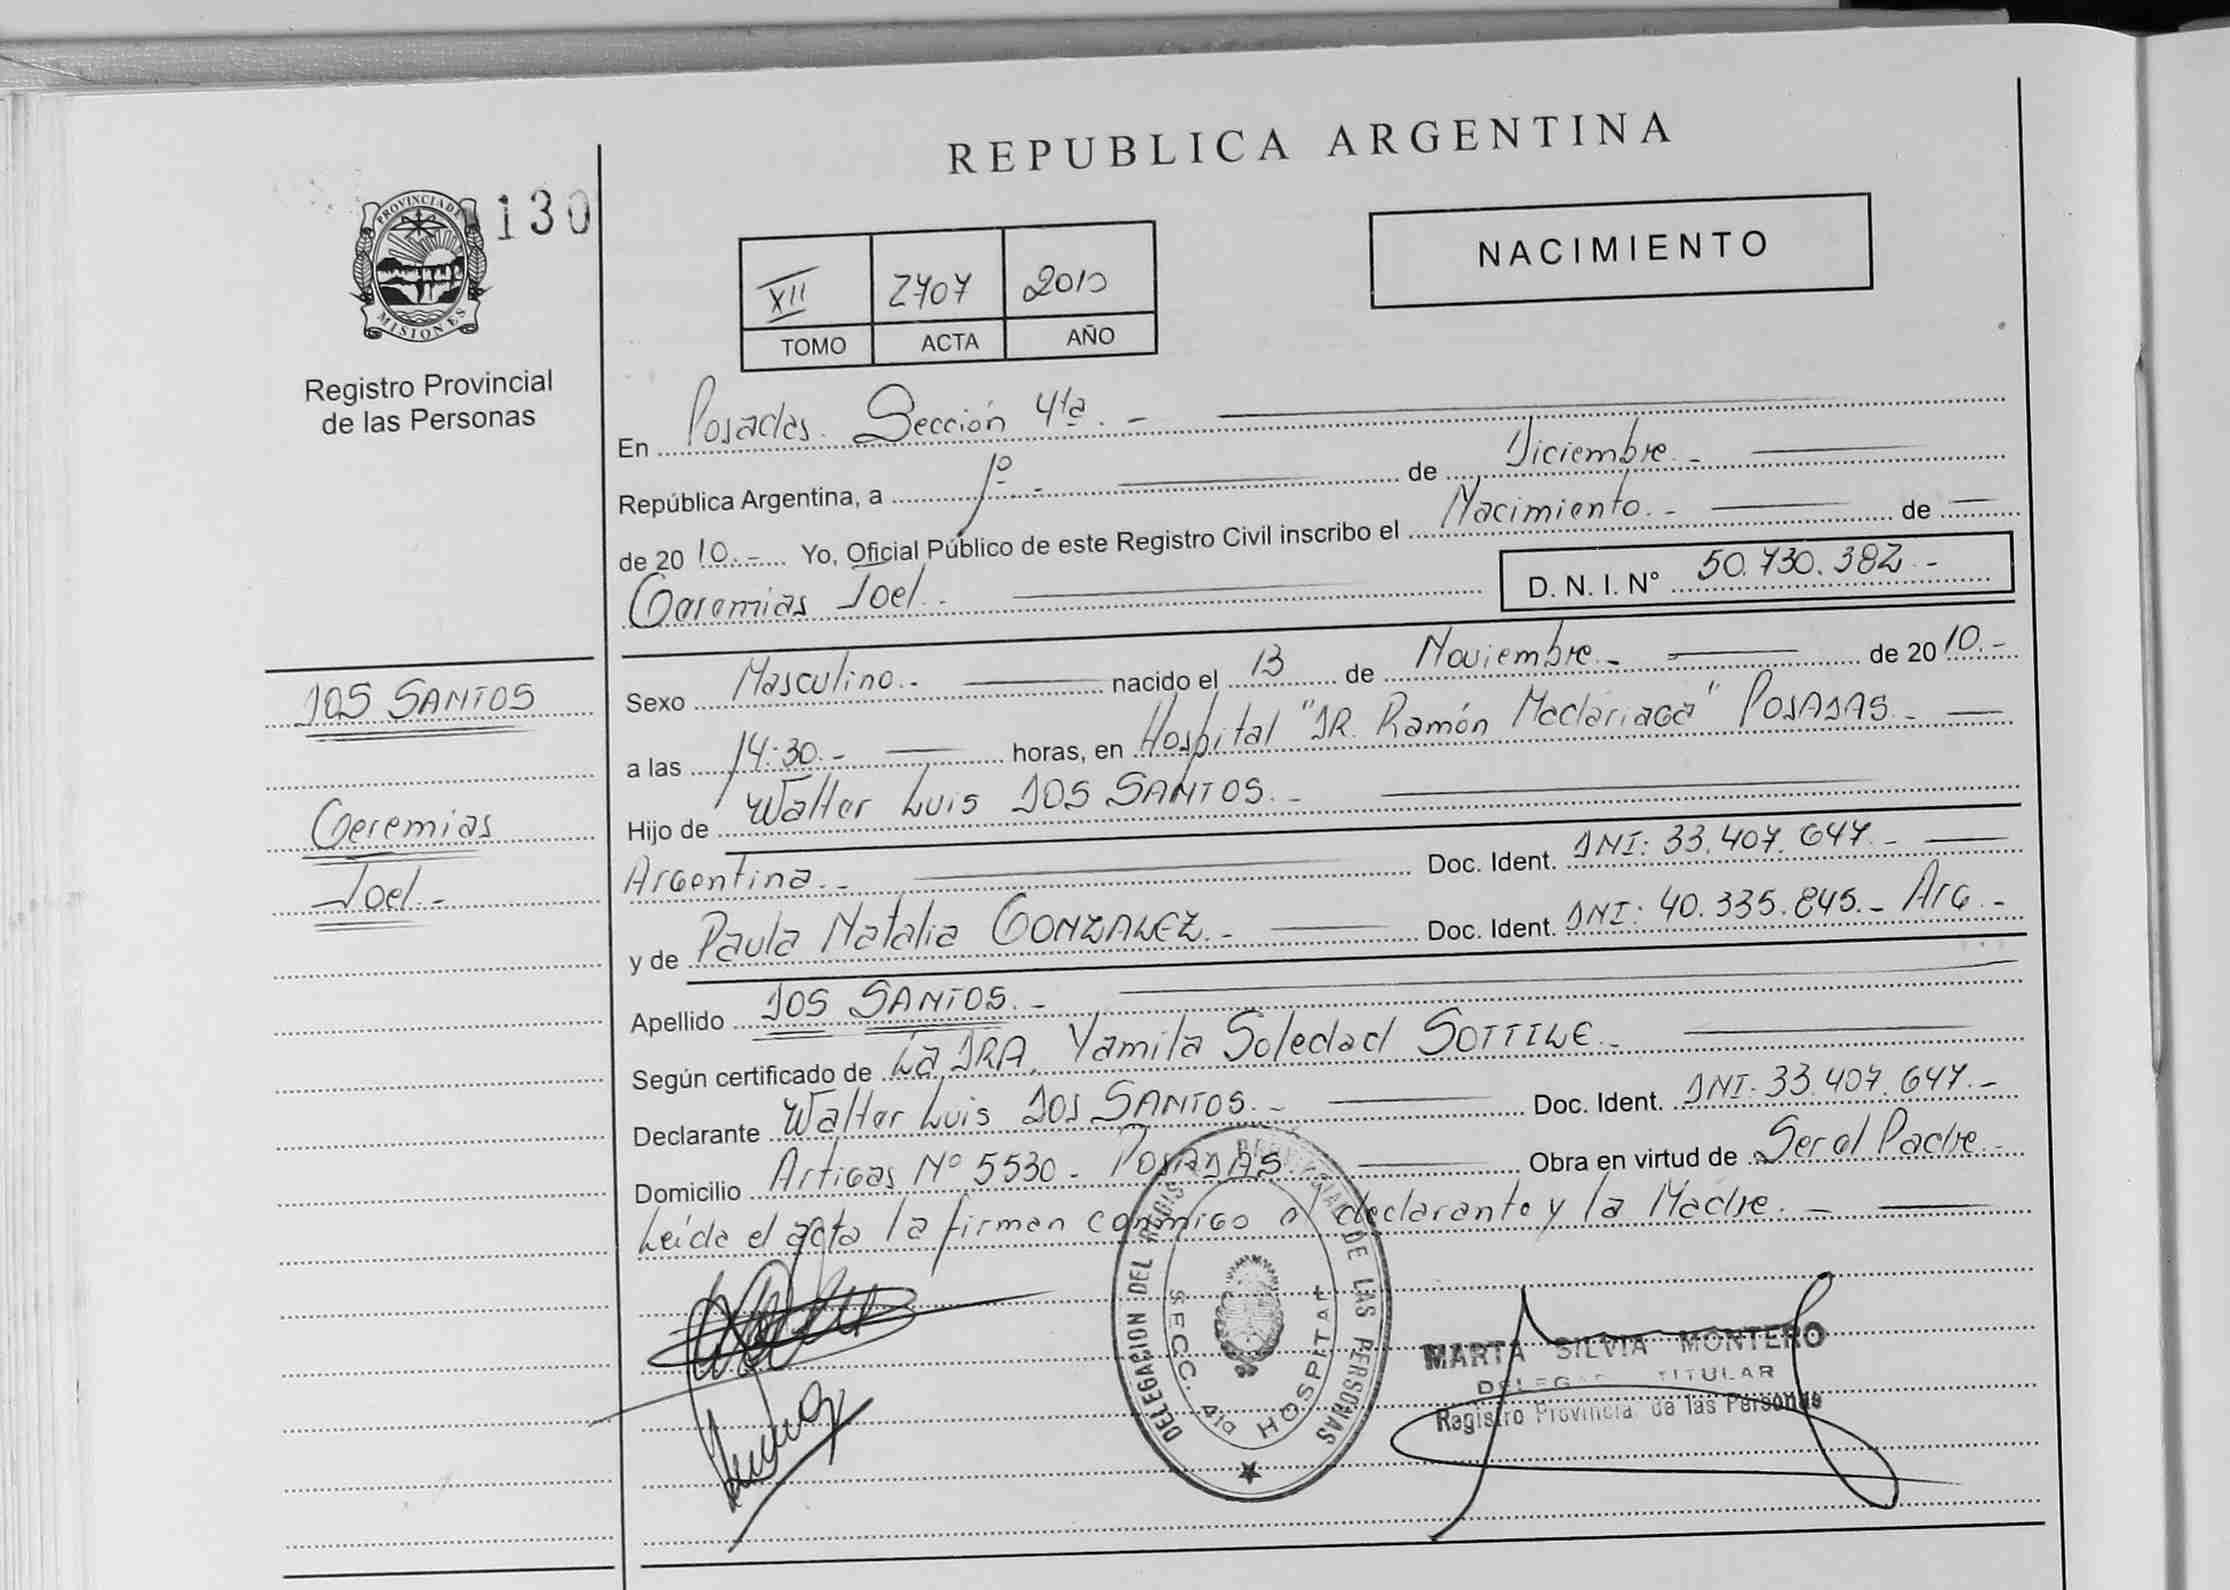 REPUBLICA ARGENTINA
PROVINCIA DE
MISIONES
130
Registro Provincial
de las Personas
XII 2707 2010
TOMO ACTA AÑO
NACIMIENTO
En Posadas. Sección 4ta. -
República Argentina, a 1º - de Diciembre. -
de 20 10.- Yo, Oficial Público de este Registro Civil inscribo el Nacimiento. - de
Geremias Joel.- D. N. I. Nº 50.730.382 -
DOS SANTOS
Geremias
Joel.-
Sexo Masculino.- nacido el 13 de Noviembre.- de 20 10.-
a las 14:30.- horas, en Hospital "DR. Ramón Madariaga" POSADAS.-
Hijo de Walter Luis DOS SANTOS.-
Argentina.- Doc. Ident. DNI: 33.407.647.-
y de Paula Natalia GONZALEZ.- Doc. Ident. DNI: 40.335.845.- Arg.-
Apellido DOS SANTOS.-
Según certificado de La DRA. Yamila Soledad SOTTILE.-
Declarante Walter Luis DOS SANTOS.- Doc. Ident. DNI: 33.407.647.-
Domicilio Artigas Nº 5530 - POSADAS. Obra en virtud de Ser el Padre.-
Leída el acta la firman conmigo el declarante y la Madre.-
DELEGACION DEL REGISTRO PROVINCIAL DE LAS PERSONAS
SECC. 4ta HOSPITAL
MARTA SILVIA MONTERO
DELEGADA TITULAR
Registro Provincial de las Personas